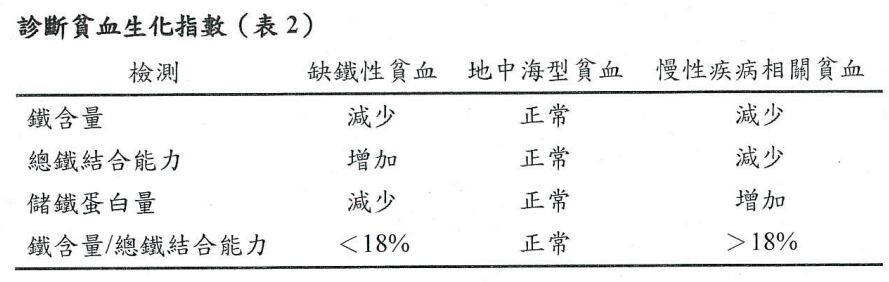 診斷貧血生化指數（表2）
檢測 缺鐵性貧血 地中海型貧血 慢性疾病相關貧血
鐵含量 減少 正常 減少
總鐵結合能力 增加 正常 減少
儲鐵蛋白量 減少 正常 增加
鐵含量/總鐵結合能力 ＜18% 正常 ＞18%